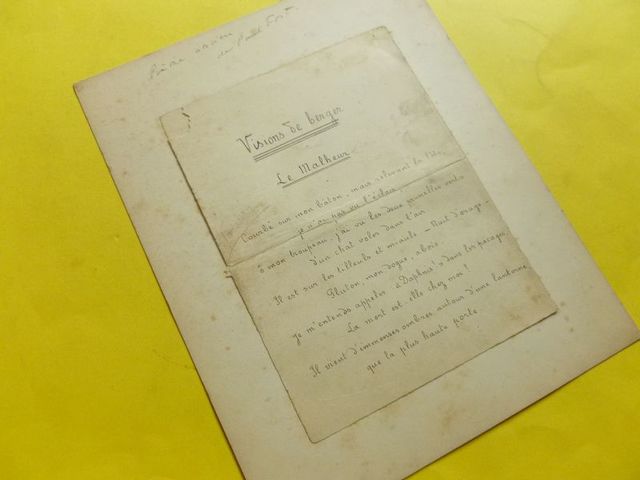 Poème ancien
de Paul Fort
Visions de berger
Le Malheur
Courbé sur mon bâton, mais relevant la tête
je n'ai pas vu l'éclair,
ô mon troupeau, j'ai vu les deux prunelles vertes
d'un chat voler dans l'air
Il est sur les tilleuls et miaule. – Nuit d'orage.
Pluton, mon dogue, aboie.
Je m'entends appeler « Daphnis » dans les pacages,
La mort est-elle chez moi ?
Il vient d'immenses ombres autour d'une lanterne
que la plus haute porte.